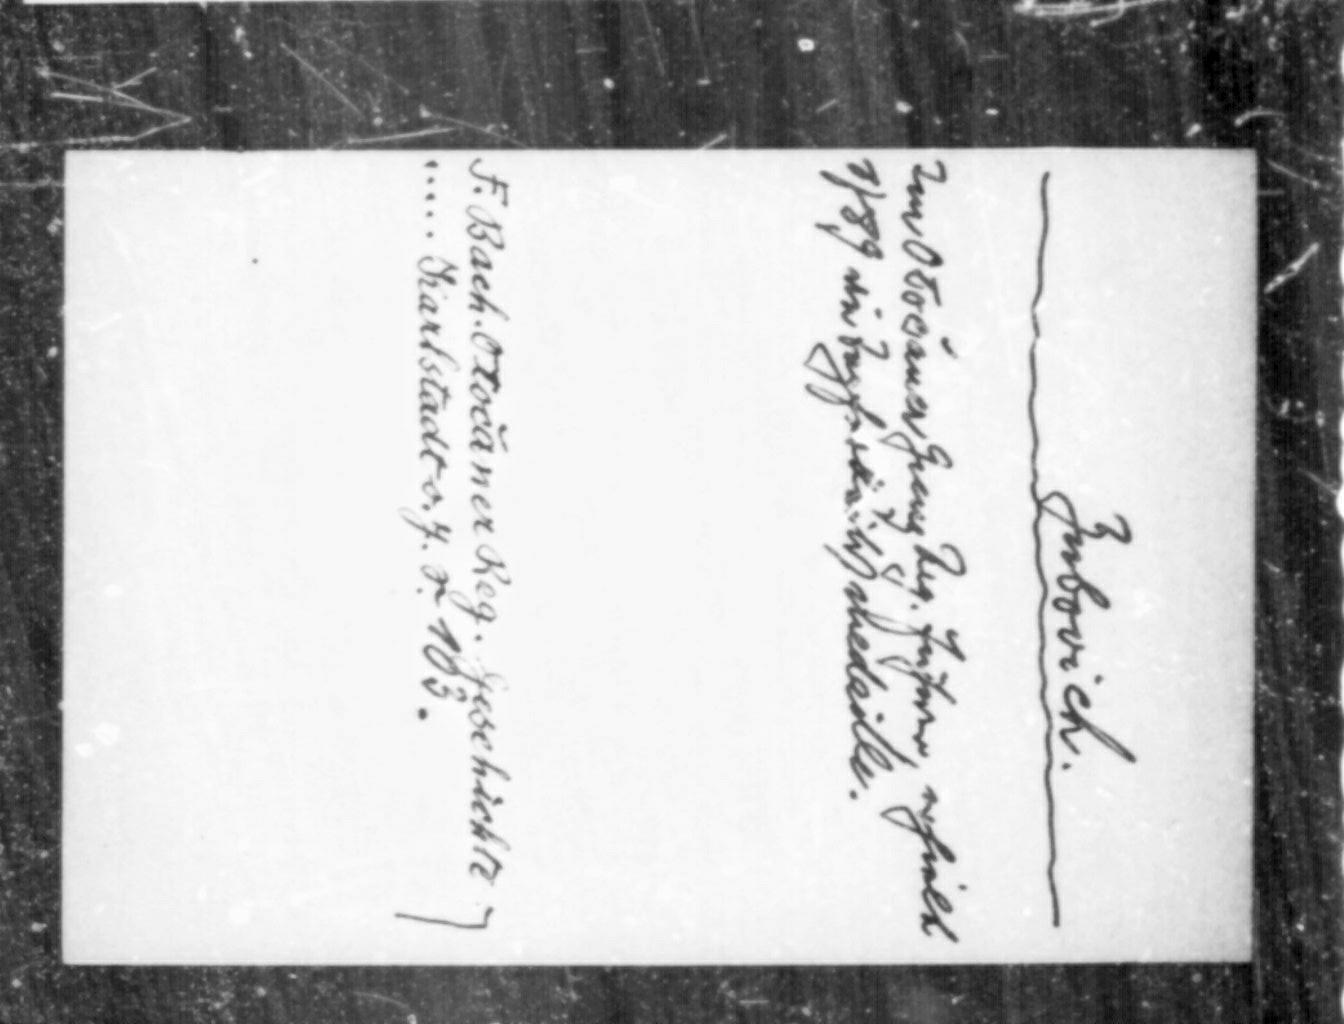 Inbovich.
Im Otočaner Grenz Reg. Infant., erhielt
1789 die Tapferkeitsmedaille.
F. Bach. Otočaner Reg. Geschichte
..... Karlstadt o. J. S. 103.